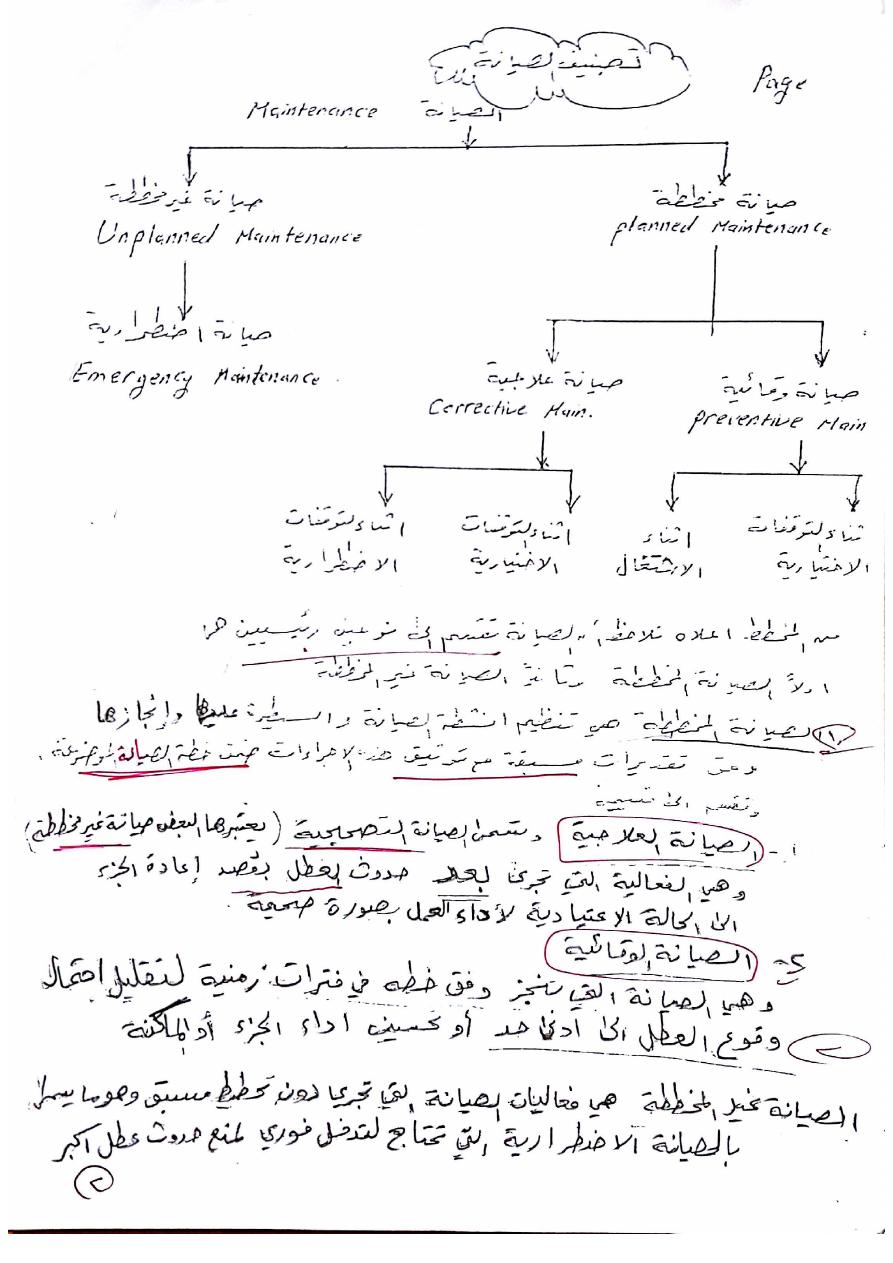 تصنيف الصيانة
Page
Maintenance الصيانة
صيانة مخططة
planned Maintenance
صيانة غير مخططة
Unplanned Maintenance
صيانة اضطرارية
Emergency Maintenance
صيانة علاجية
Corrective Main.
صيانة وقائية
preventive Main
اثناء التوقفات
الاضطرارية
اثناء التوقفات
الاختيارية
اثناء
الاشتغال
ثناء التوقفات
الاختيارية
من المخطط اعلاه نلاحظ الصيانة تقسم الى نوعين رئيسيين
اولاً الصيانة المخططة وثانياً الصيانة غير المخططة
١) الصيانة المخططة هي تنظيم انشطة الصيانة والسيطرة عليها وإنجازها
وفق تقديرات مسبقة مع توثيق هذه الاجراءات ضمن خطة الصيانة الموضوعة.
وتقسم الى
١- الصيانة العلاجية وتسمى الصيانة التصحيحية (يعتبرها البعض صيانة غير مخططة)
وهي الفعالية التي تجرى بعد حدوث العطل بقصد إعادة الجزء
الى الحالة الاعتيادية لأداء العمل بصورة صحيحة.
الصيانة الوقائية
وهي الصيانة التي تنجز وفق خطه في فترات زمنية لتقليل احتمال
وقوع العطل الى ادنى حد أو تحسين اداء الجزء أو الماكنة
الصيانة غير المخططة هي فعاليات الصيانة التي تجرى دون تخطيط مسبق وهو ما يسمى
بالصيانة الاضطرارية التي تحتاج لتدخل فوري لمنع حدوث عطل اكبر
٢